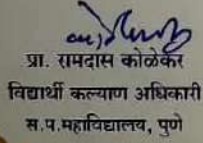 प्रा. रामदास कोळेकर
विद्यार्थी कल्याण अधिकारी
स.प.महाविद्यालय, पुणे